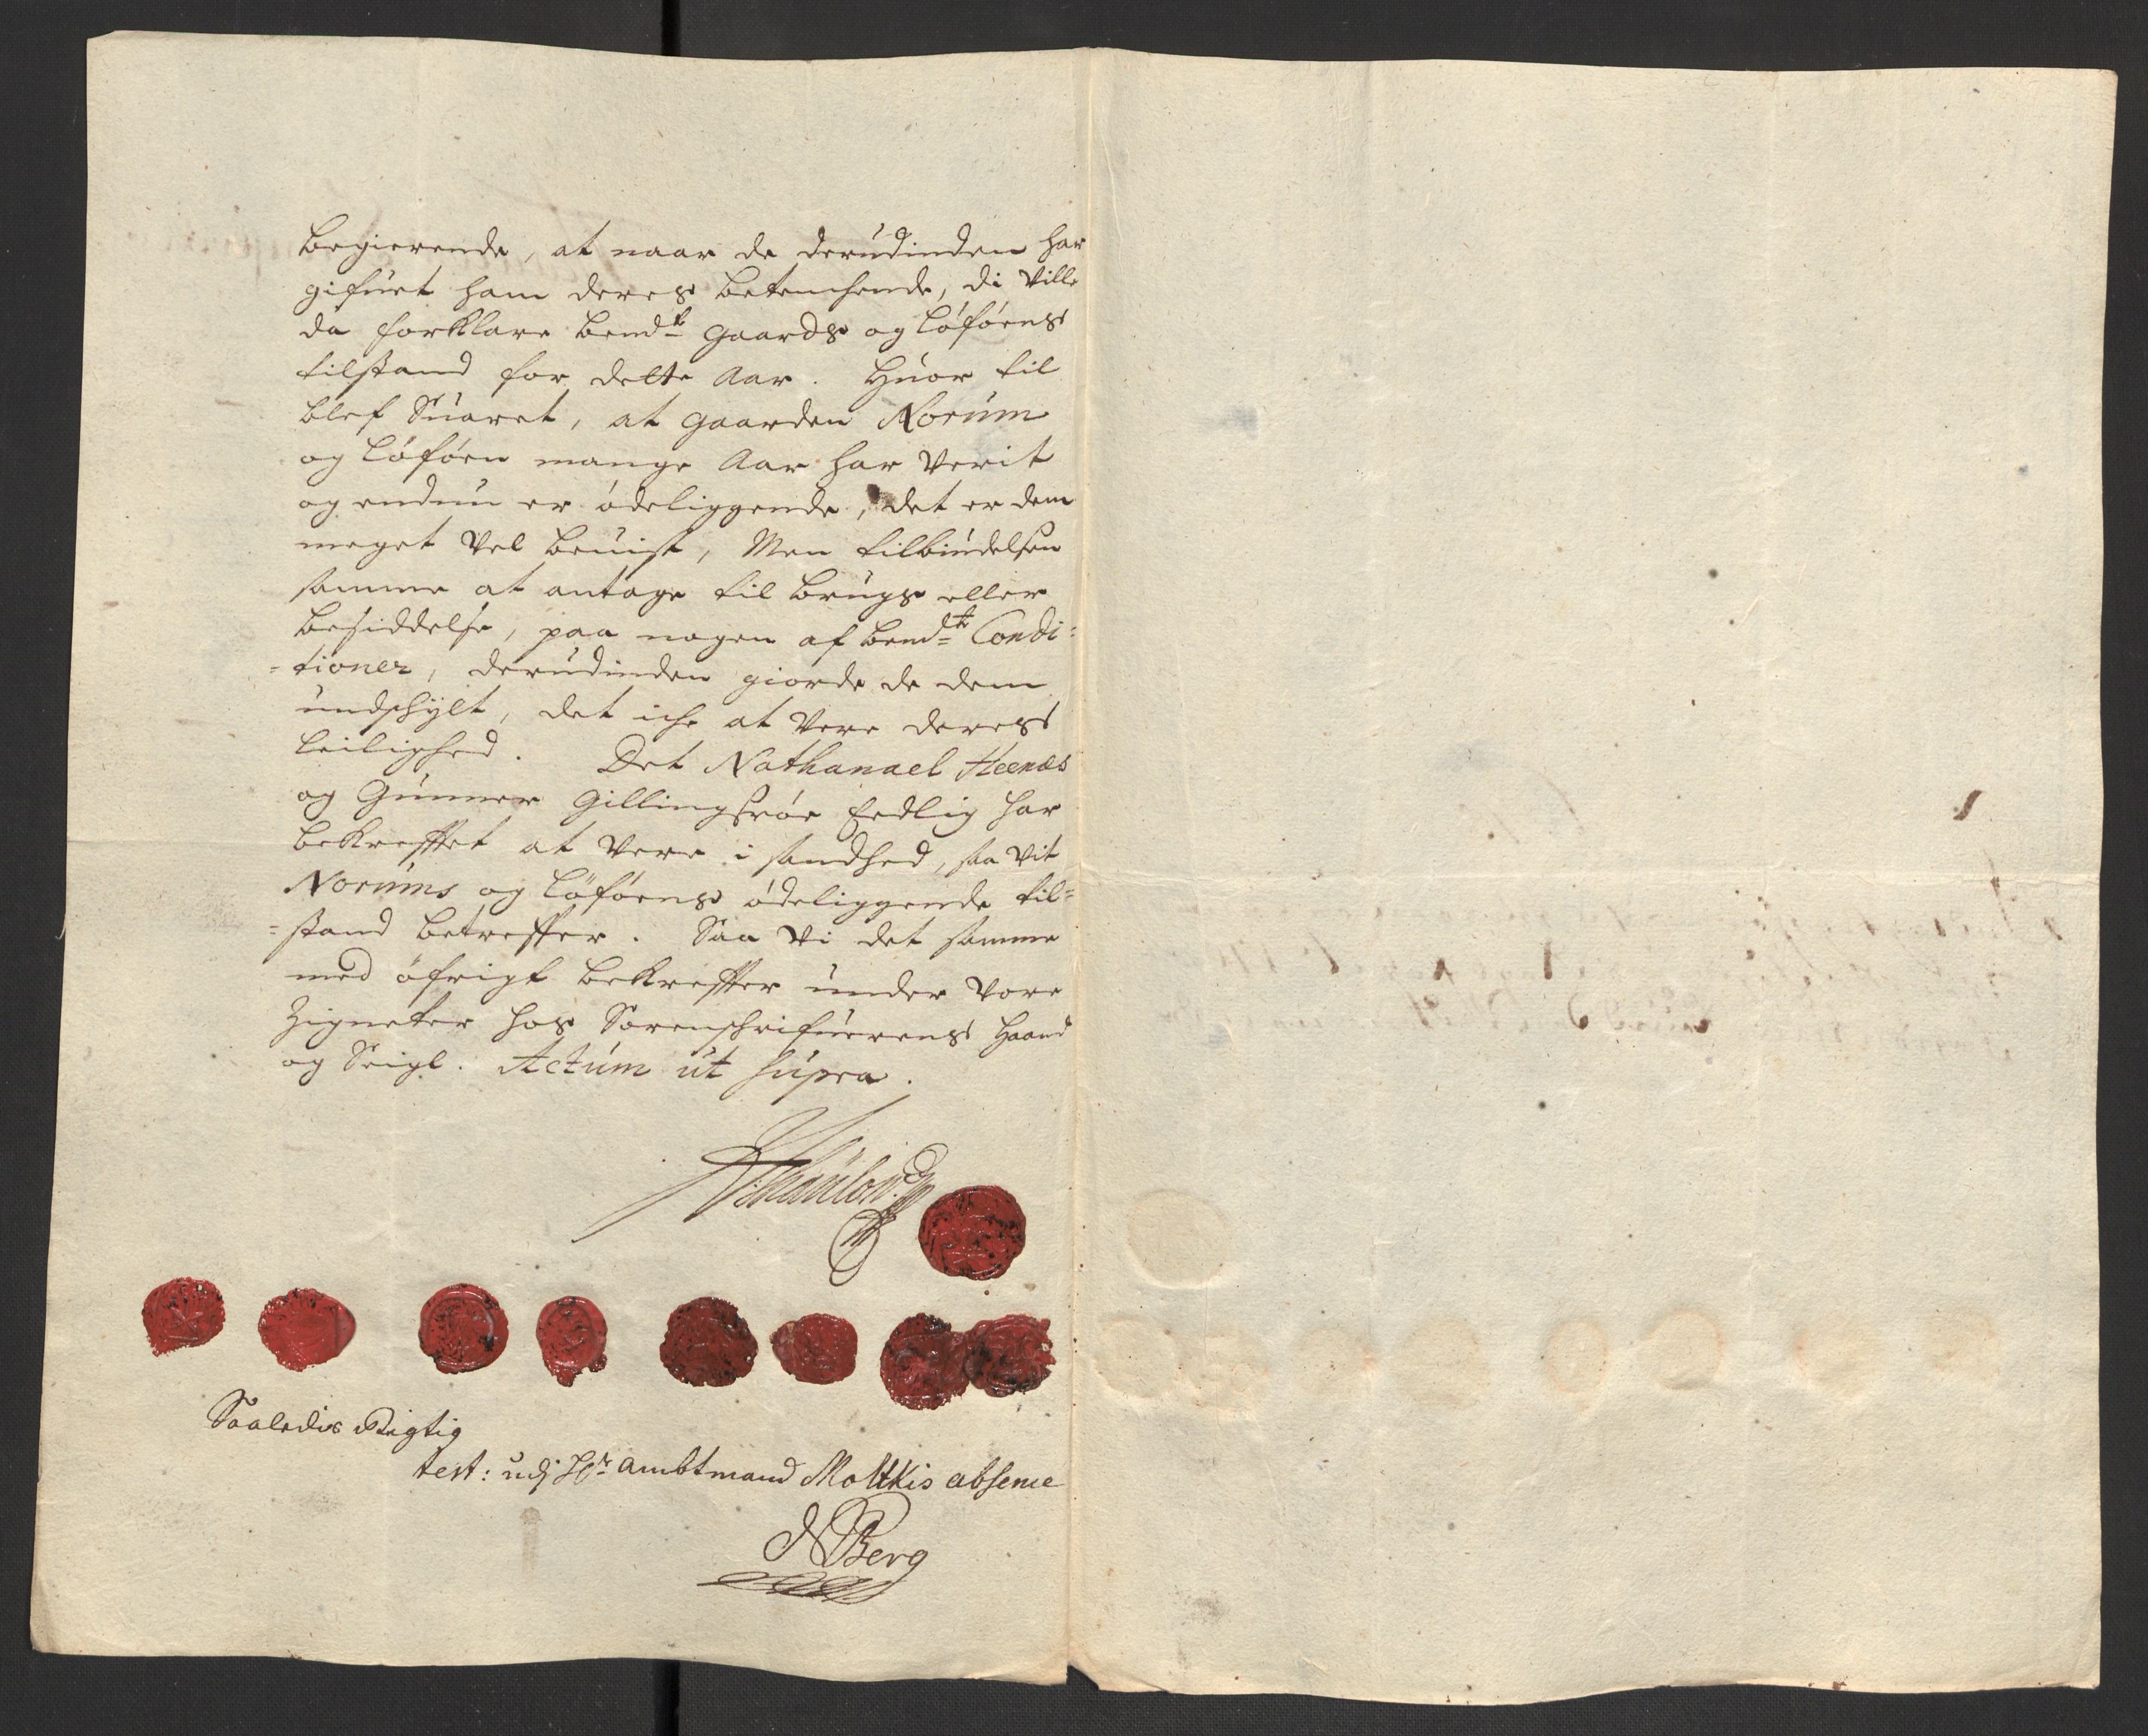 begierende, at naar de derudinden har
gifuet ham deres betenchende, di ville
da forklare bemdte gaards og Löföens
tilstand for dette Aar. Huor til
blef Suaret, at gaarden Norum
og Löföen mange Aar har verit
og endnu er ödeliggende, det er dem
meget vel beuist, Men tilbiudelsen
samme at antage til brugs eller
besiddelse, paa nogen af bemdte Condi=
=tioner, derudinden giorde de dem
undschylt, det iche at vere deres
Leilighed. Det Nathanael Heenæs
og Gunner Gillingsröe Eedlig har
bekreftet at vere i sandhed, saa vit
Norums og Löföens ödeliggende til=
=stand betreffer. Saa vi det samme
med öfrigt bekreffter under vore
Zigneter hos Sorenschrifuerens Haand
og Seigl. Actum ut supra.
Saaledis Rigtig
test: udj Hr Ambtmand Moltkis absence
Berg